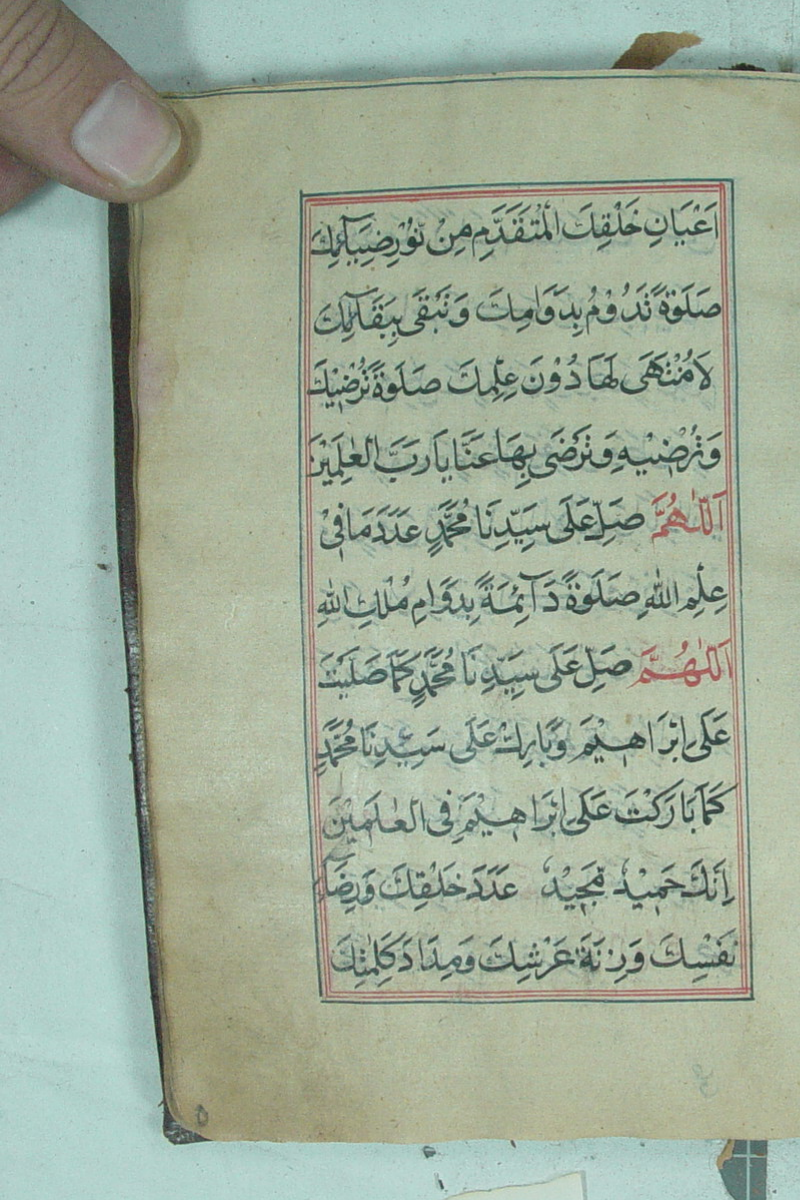 اَعْيَانِ خَلْقِكَ الْمُتَقَدَّمِ مِنْ نُوْرِ ضِيَآئِكَ
صَلٰوةً تَدُوْمُ بِدَوَامِكَ وَتَبْقٰى بِبَقَآئِكَ
لَا مُنْتَهٰى لَهَا دُوْنَ عِلْمِكَ صَلٰوةً تُرْضِيْكَ
وَتُرْضِيْهِ وَتَرْضٰى بِهَا عَنَّا يَا رَبَّ الْعٰلَمِيْنَ
اَللّٰهُمَّ صَلِّ عَلٰى سَيِّدِنَا مُحَمَّدٍ عَدَدَ مَا فِيْ
عِلْمِ اللهِ صَلٰوةً دَآئِمَةً بِدَوَامِ مُلْكِ اللهِ
اَللّٰهُمَّ صَلِّ عَلٰى سَيِّدِنَا مُحَمَّدٍ كَمَا صَلَّيْتَ
عَلٰى اِبْرَاهِيْمَ وَبَارِكْ عَلٰى سَيِّدِنَا مُحَمَّدٍ
كَمَا بَارَكْتَ عَلٰى اِبْرَاهِيْمَ فِى الْعٰلَمِيْنَ
اِنَّكَ حَمِيْدٌ مَّجِيْدٌ عَدَدَ خَلْقِكَ وَرِضَآ
نَفْسِكَ وَزِنَةَ عَرْشِكَ وَمِدَادَ كَلِمٰتِكَ